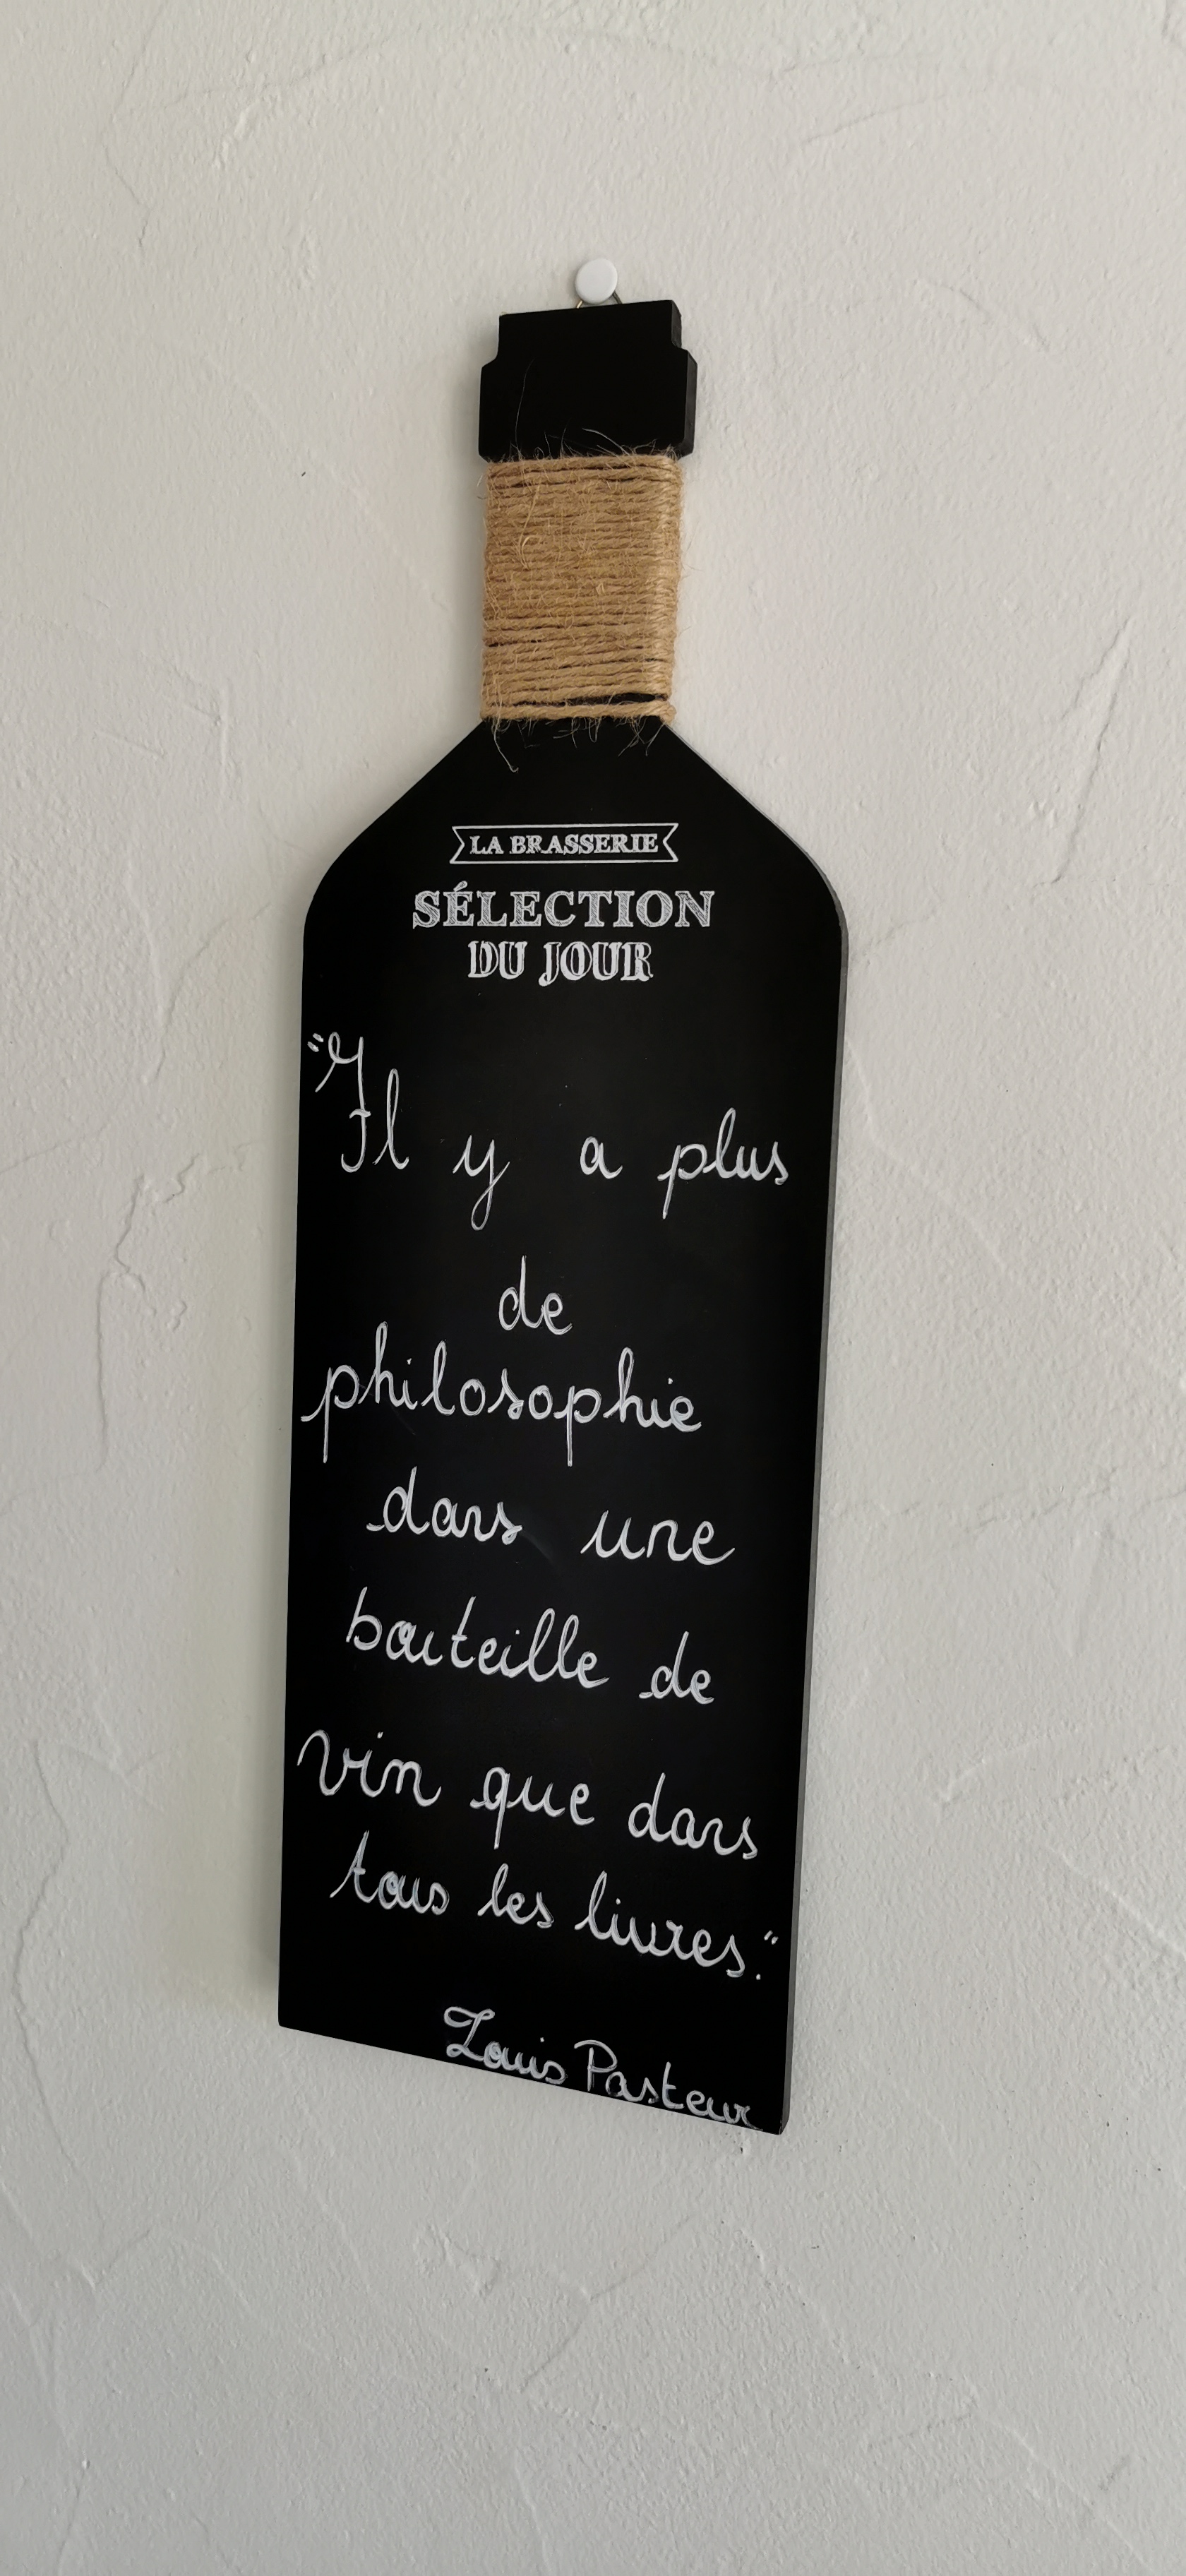 LA BRASSERIE
SÉLECTION
DU JOUR
"Il y a plus
de
philosophie
dans une
bouteille de
vin que dans
tous les livres."
Louis Pasteur